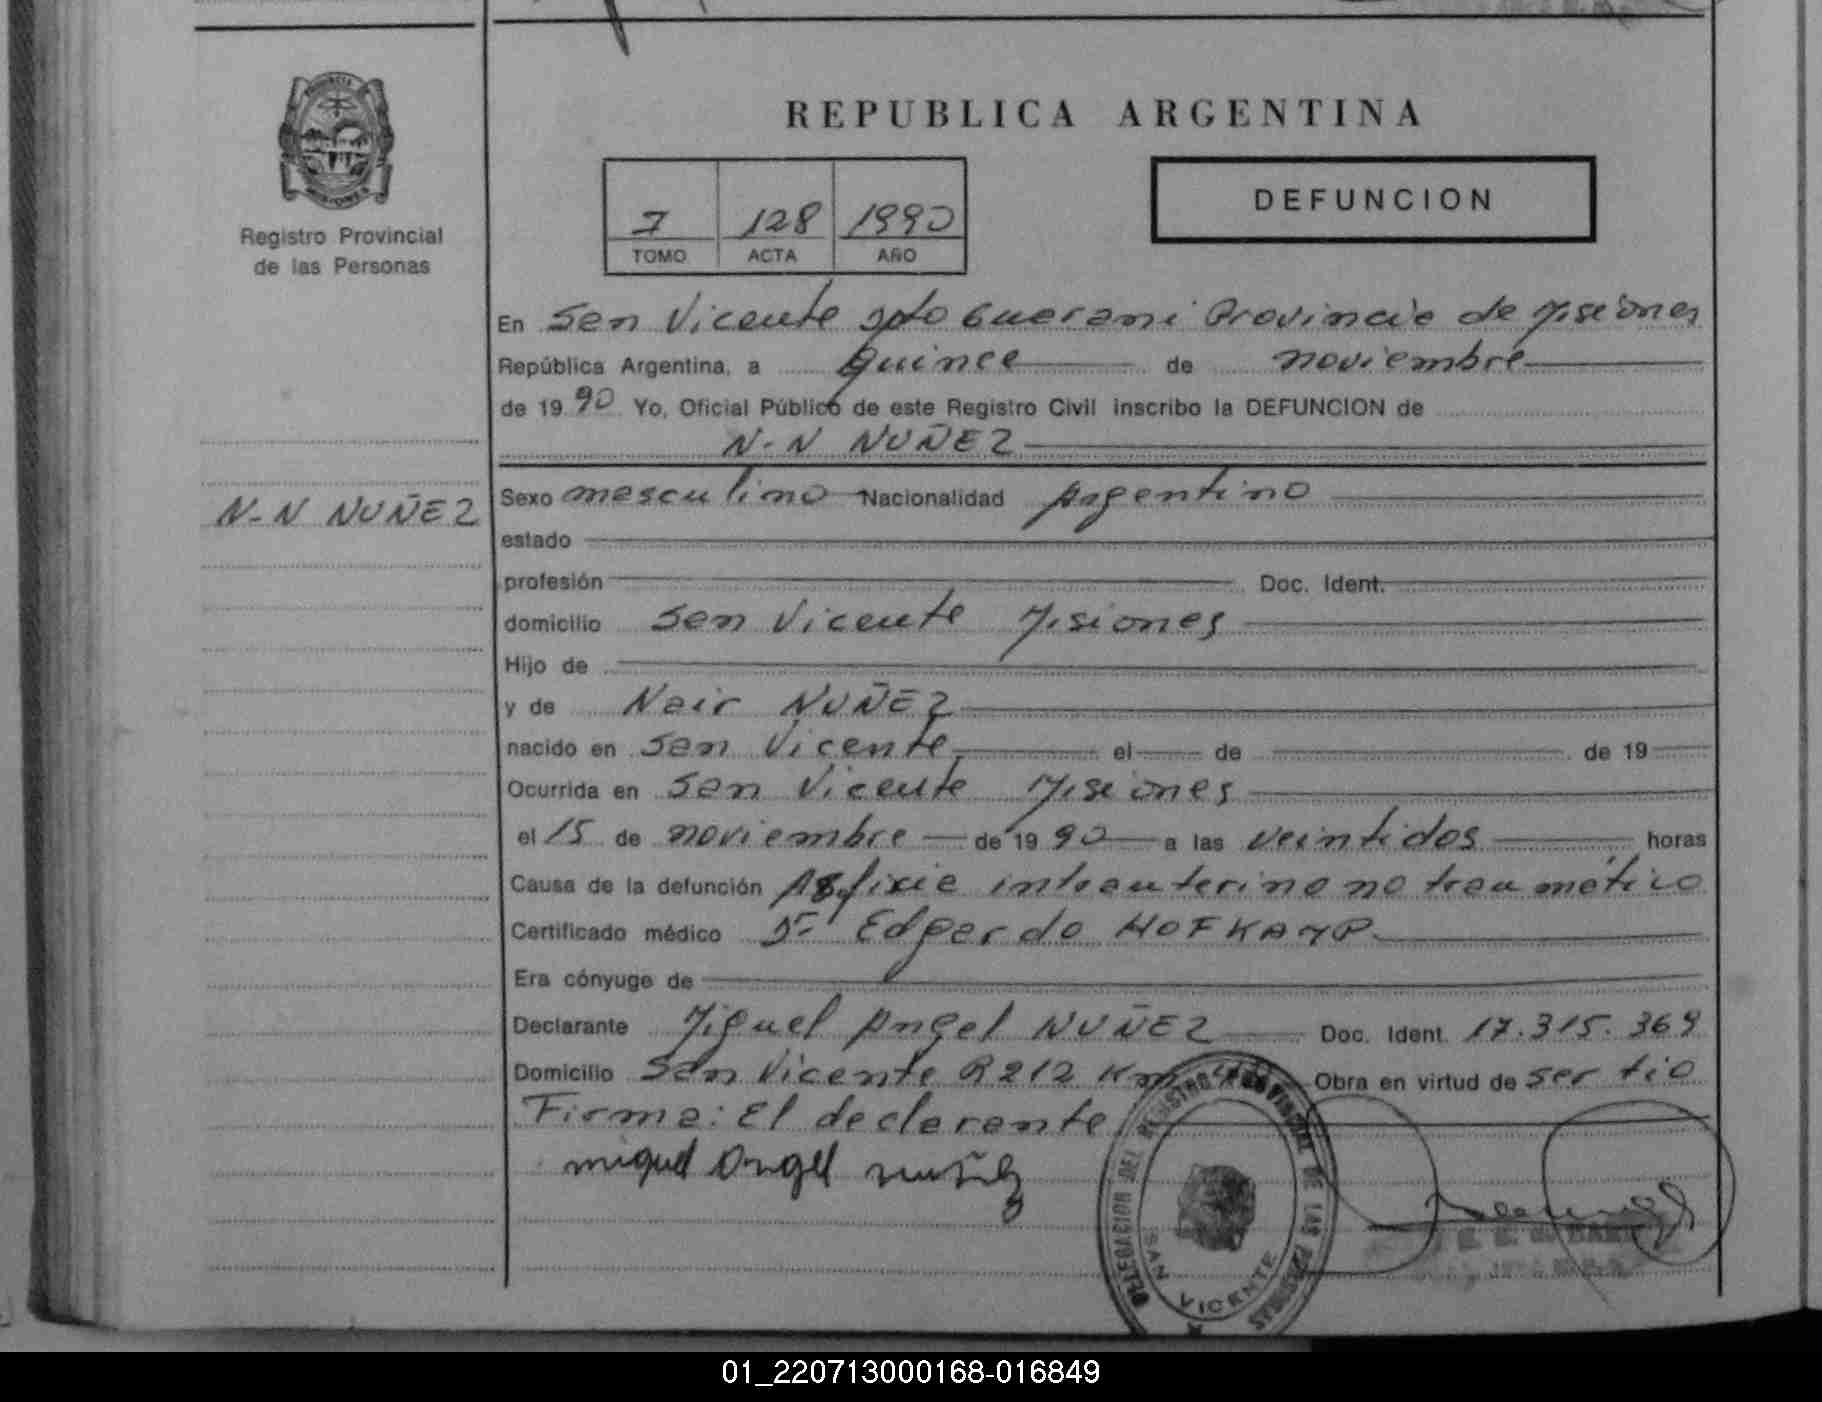 REPUBLICA ARGENTINA
PROVINCIA DE
MISIONES
Registro Provincial
de las Personas
I 128 1990
TOMO ACTA AÑO
DEFUNCION
En San Vicente Dpto Guarani Provincia de Misiones
República Argentina, a quince de noviembre
de 19 90 Yo, Oficial Público de este Registro Civil inscribo la DEFUNCION de
N-N NUÑEZ
N-N NUÑEZ
Sexo masculino Nacionalidad Argentino
estado
profesión Doc. Ident.
domicilio San Vicente Misiones
Hijo de
y de Nair NUÑEZ
nacido en San Vicente el de de 19
Ocurrida en San Vicente Misiones
el 15 de noviembre de 19 90 a las veintidos horas
Causa de la defunción Asfixia intrauterino no traumático
Certificado médico Dr Edgardo HOFKAMP
Era cónyuge de
Declarante Miguel Angel NUÑEZ Doc. Ident. 17.315.369
Domicilio San Vicente R 212 Km Obra en virtud de ser tio
Firma: El declarante
miguel Angel nuñez
DELEGACION DEL REGISTRO PROVINCIAL DE LAS PERSONAS
SAN VICENTE
01_220713000168-016849